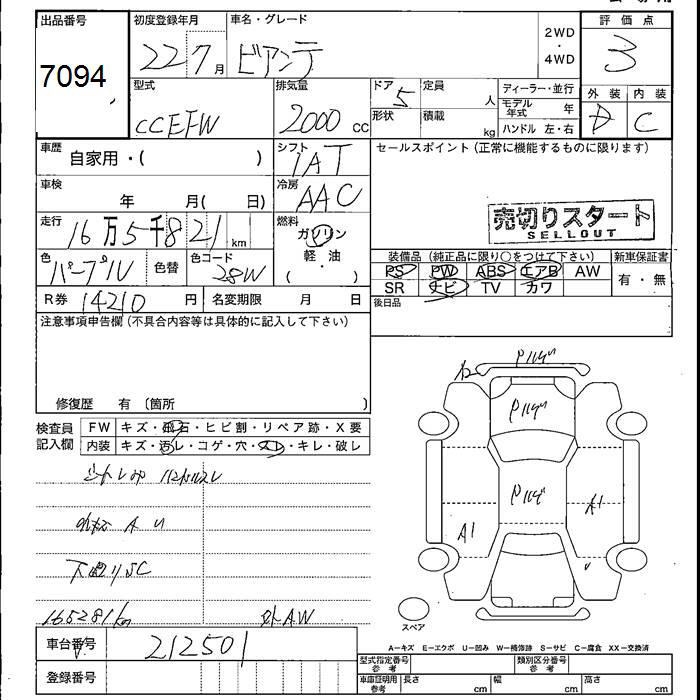 出品番号
7094
初度登録年月
22 7月
車名・グレード
ビアンテ
2WD
・
4WD
評価点
3
型式
CCEFW
排気量
2000 cc
ドア
5
形状
定員
人
積載
kg
ディーラー・並行
モデル年式 年
ハンドル 左・右
外装
D
内装
C
車歴
自家用・( )
シフト
IAT
セールスポイント(正常に機能するものに限ります)
車検
年 月( 日)
冷房
AAC
売切りスタート
SELLOUT
走行
16万5千821km
燃料
ガソリン
軽・油
( ・ )
色
パープル
色替
色コード
28W
装備品(純正品に限り○をつけて下さい)
新車保証書
PS PW ABS エアB AW
SR ナビ TV カワ
有・無
後日品
R券 14210 円
名変期限 月 日
注意事項申告欄(不具合内容等は具体的に記入して下さい)
修復歴 有 〔箇所 〕
検査員
記入欄
FW キズ・飛石・ヒビ割・リペア跡・X要
内装 キズ・汚レ・コゲ・穴・スレ・キレ・破レ
A U
下廻りSC
165281km
外AW
A1
A1
スペア
車台番号
212501
登録番号
A-キズ E-エクボ U-凹み W-補修跡 S-サビ C-腐食 XX-交換済
型式指定番号
参考
類別区分番号
参考
車庫証明用
参考
長さ cm
幅 cm
高さ cm